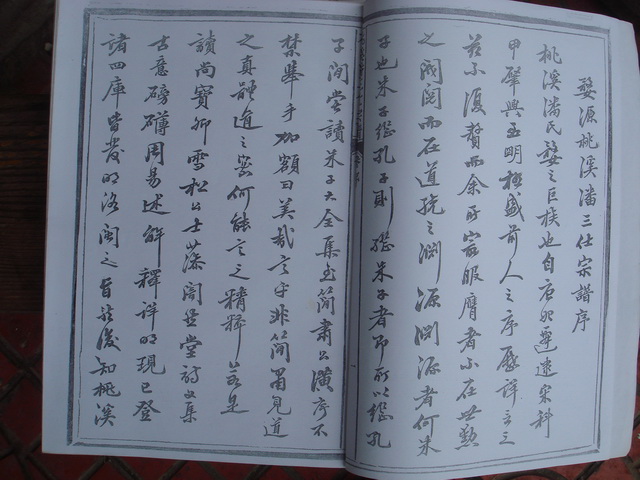 婺源桃溪潘三仕宗譜序
桃溪潘氏婺之巨族也自唐肥遯逮宋科
甲肇興至明極盛前人之序歷詳言之
若不復贅而余所最服膺者不在世勲
之閥閱而在道統之淵源淵源者何朱
子也朱子繼孔子則繼朱子者即所以繼孔
子閒嘗讀朱子大全集至簡肅公潢序不
禁舉手加額曰美哉言乎非簡肅見道
之真體道之密何能言之精粹若是
讀尚寶卿雪松公士藻闇然堂詩文集
古意磅礴周易述解釋詳明現已登
諸四庫皆發明洛閩之旨然後知桃溪